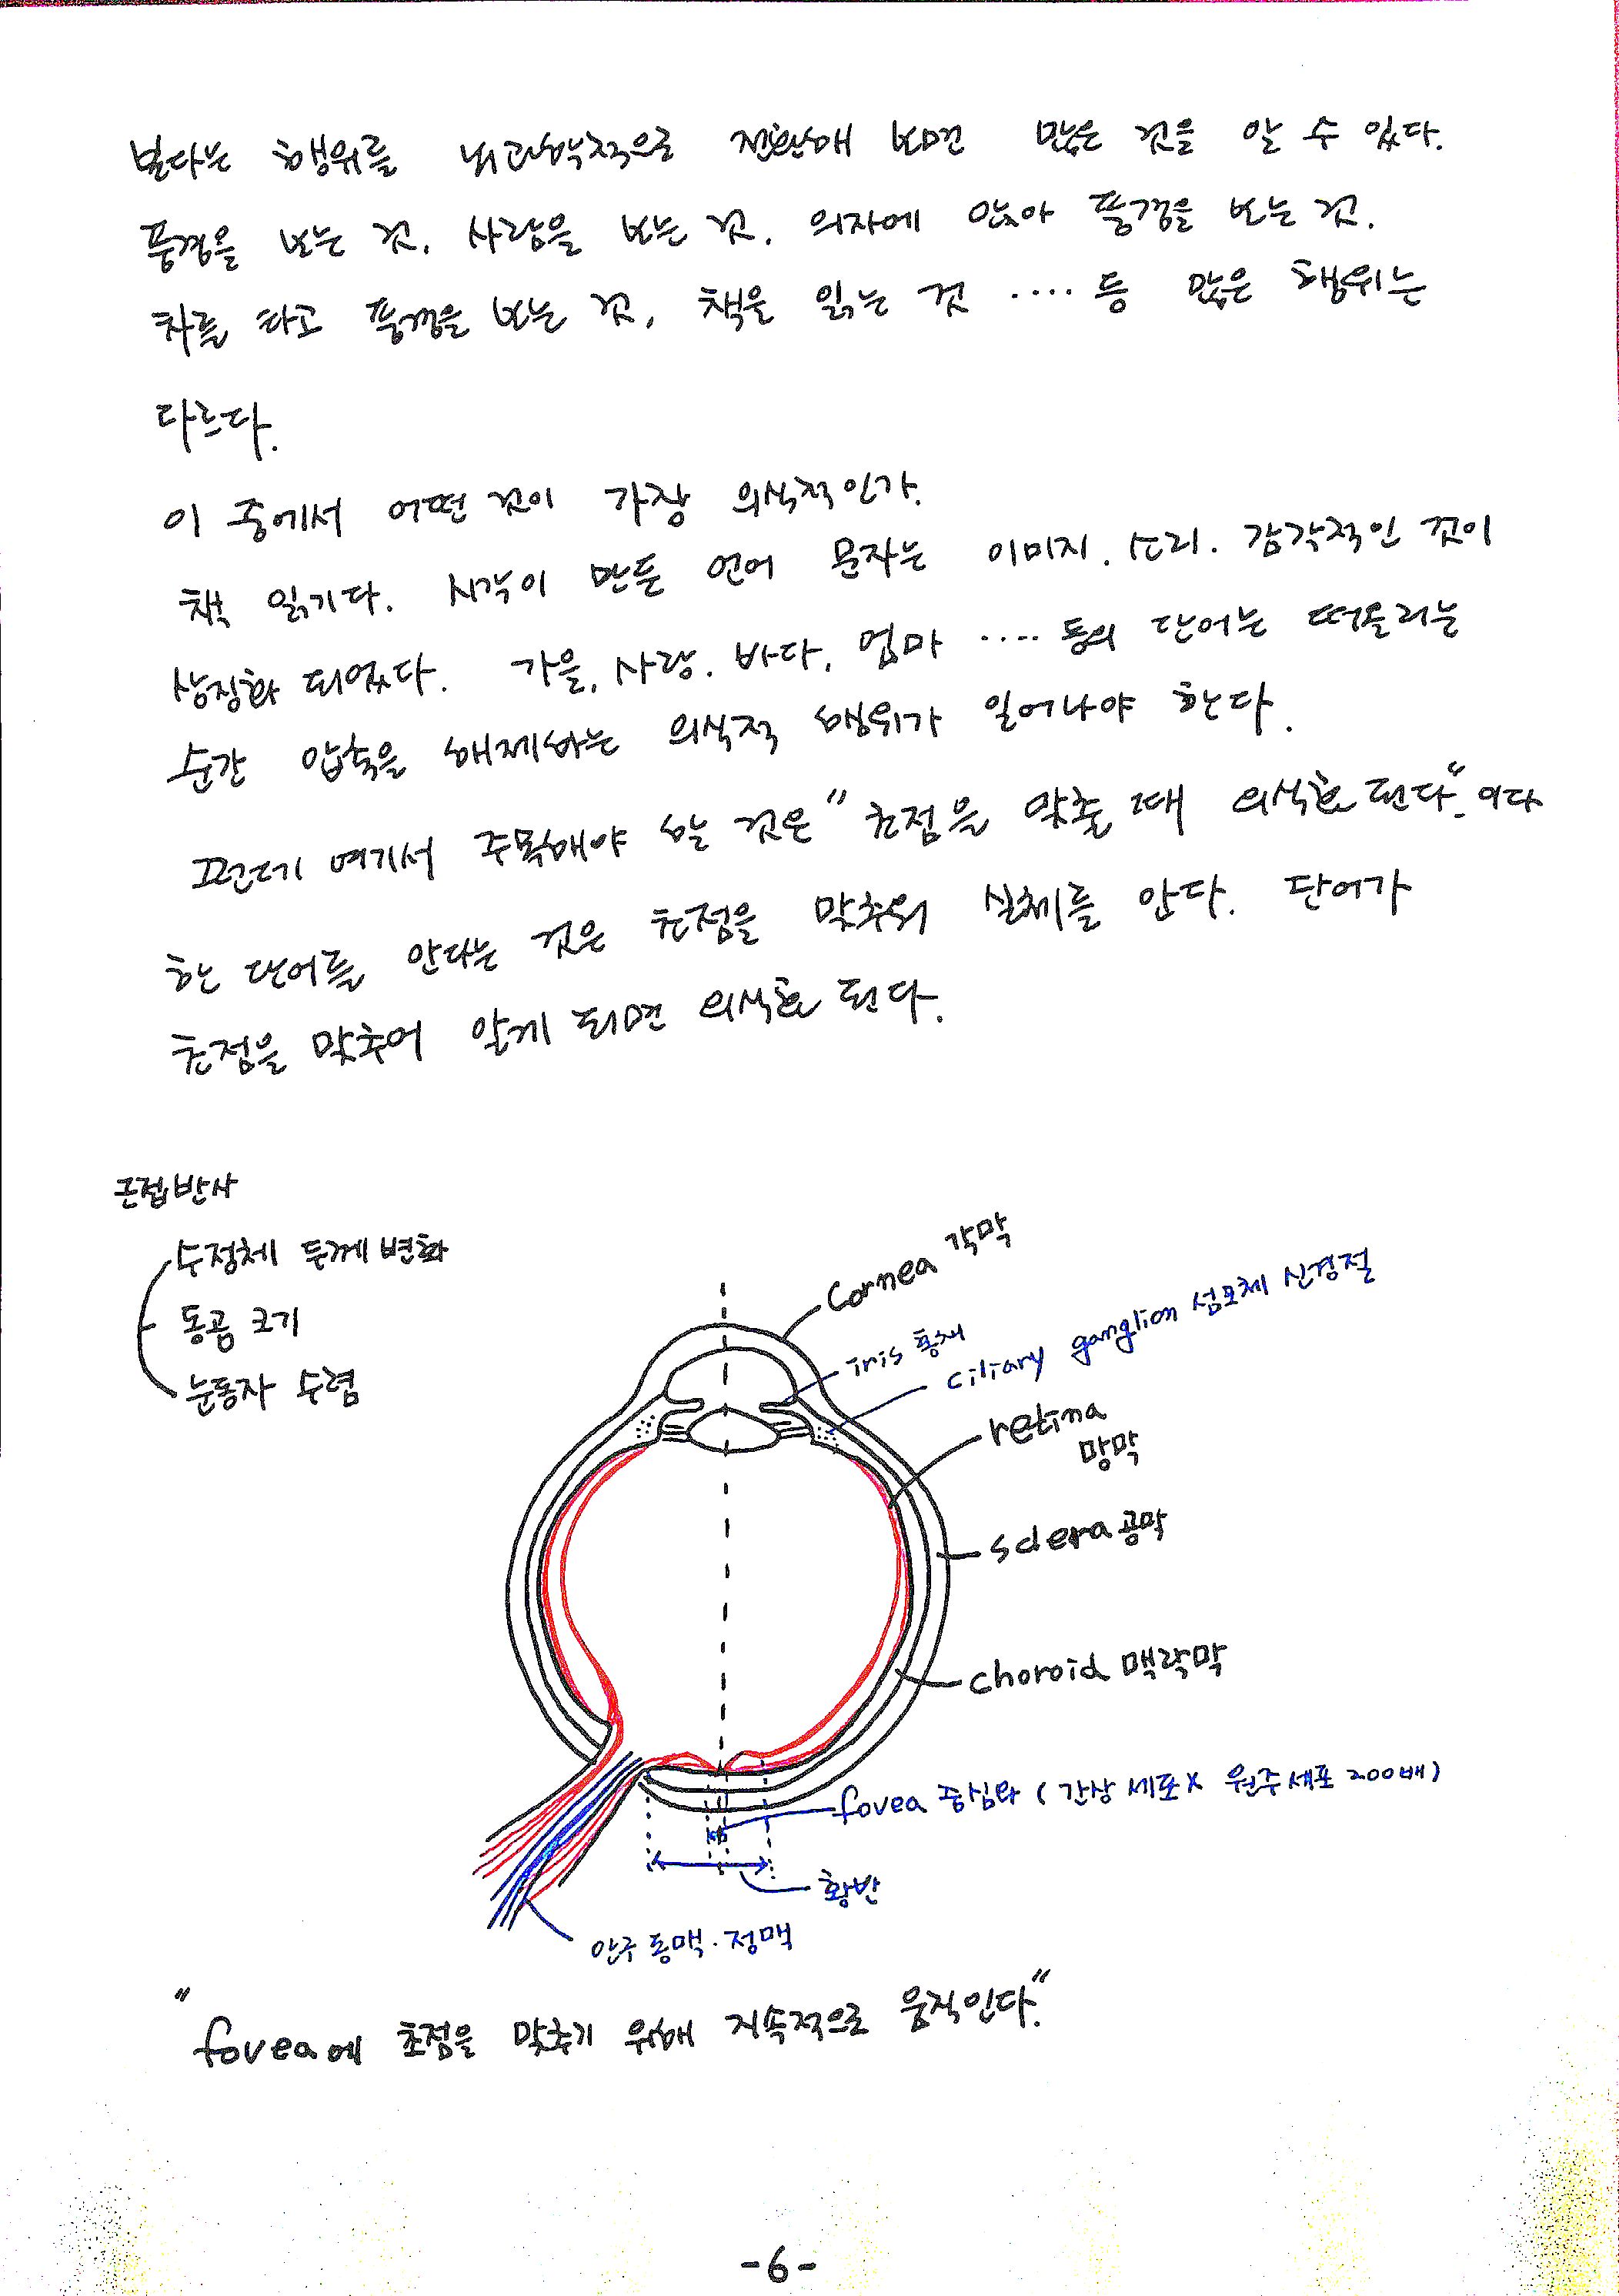 본다는 행위를 뇌과학적으로 전환해 보면 많은 것을 알 수 있다.
풍경을 보는 것, 사람을 보는 것, 의자에 앉아 풍경을 보는 것.
차를 타고 풍경을 보는 것, 책을 읽는 것 ‥‥ 등 많은 행위는
다르다.
이 중에서 어떤 것이 가장 의식적인가.
책 읽기다. 시각이 만든 언어 문자는 이미지. 소리. 감각적인 것이
상징화 되었다. 가을, 사랑. 바다, 엄마 ‥‥ 등의 단어는 떠올리는
순간 압축을 해제하는 의식적 행위가 일어나야 한다.
그런데 여기서 주목해야 하는 것은 "초점을 맞출 때 의식화 된다". 이다
한 단어를 안다는 것은 초점을 맞추워 실체를 안다. 단어가
초점을 맞추어 알게 되면 의식화 된다.
근접반사
수정체 두께 변화
동공 크기
눈동자 수렴
cornea 각막
iris 홍채
ciliary ganglion 섬모체 신경절
retina
망막
sclera 공막
choroid 맥락막
fovea 중심와 ( 간상 세포 x 원주세포 200배)
황반
안구 동맥 · 정맥
"fovea에 초점을 맞추기 위해 지속적으로 움직인다."
-6-